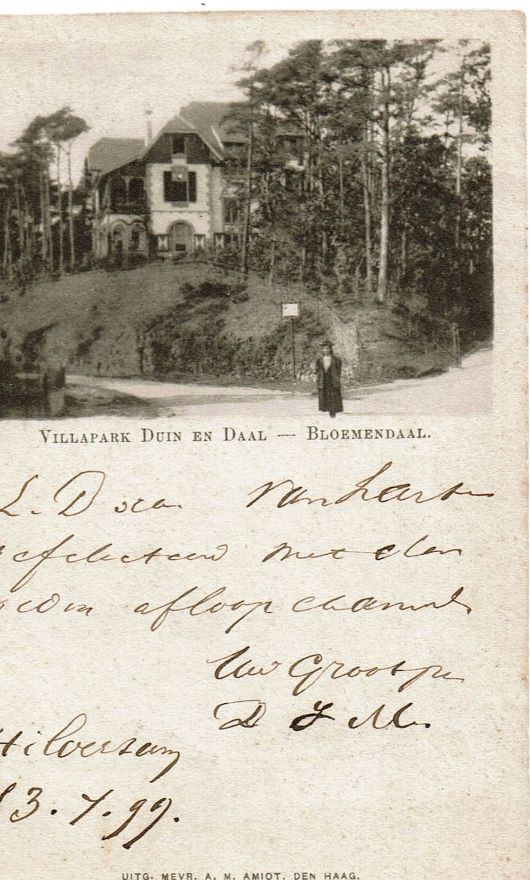 VILLAPARK DUIN EN DAAL — BLOEMENDAAL.
L. Dora van harte
met den
afloop
Uw Grootpa
D J M.
Hilversum
13.7.99.
UITG. MEVR. A. M. AMIOT, DEN HAAG.